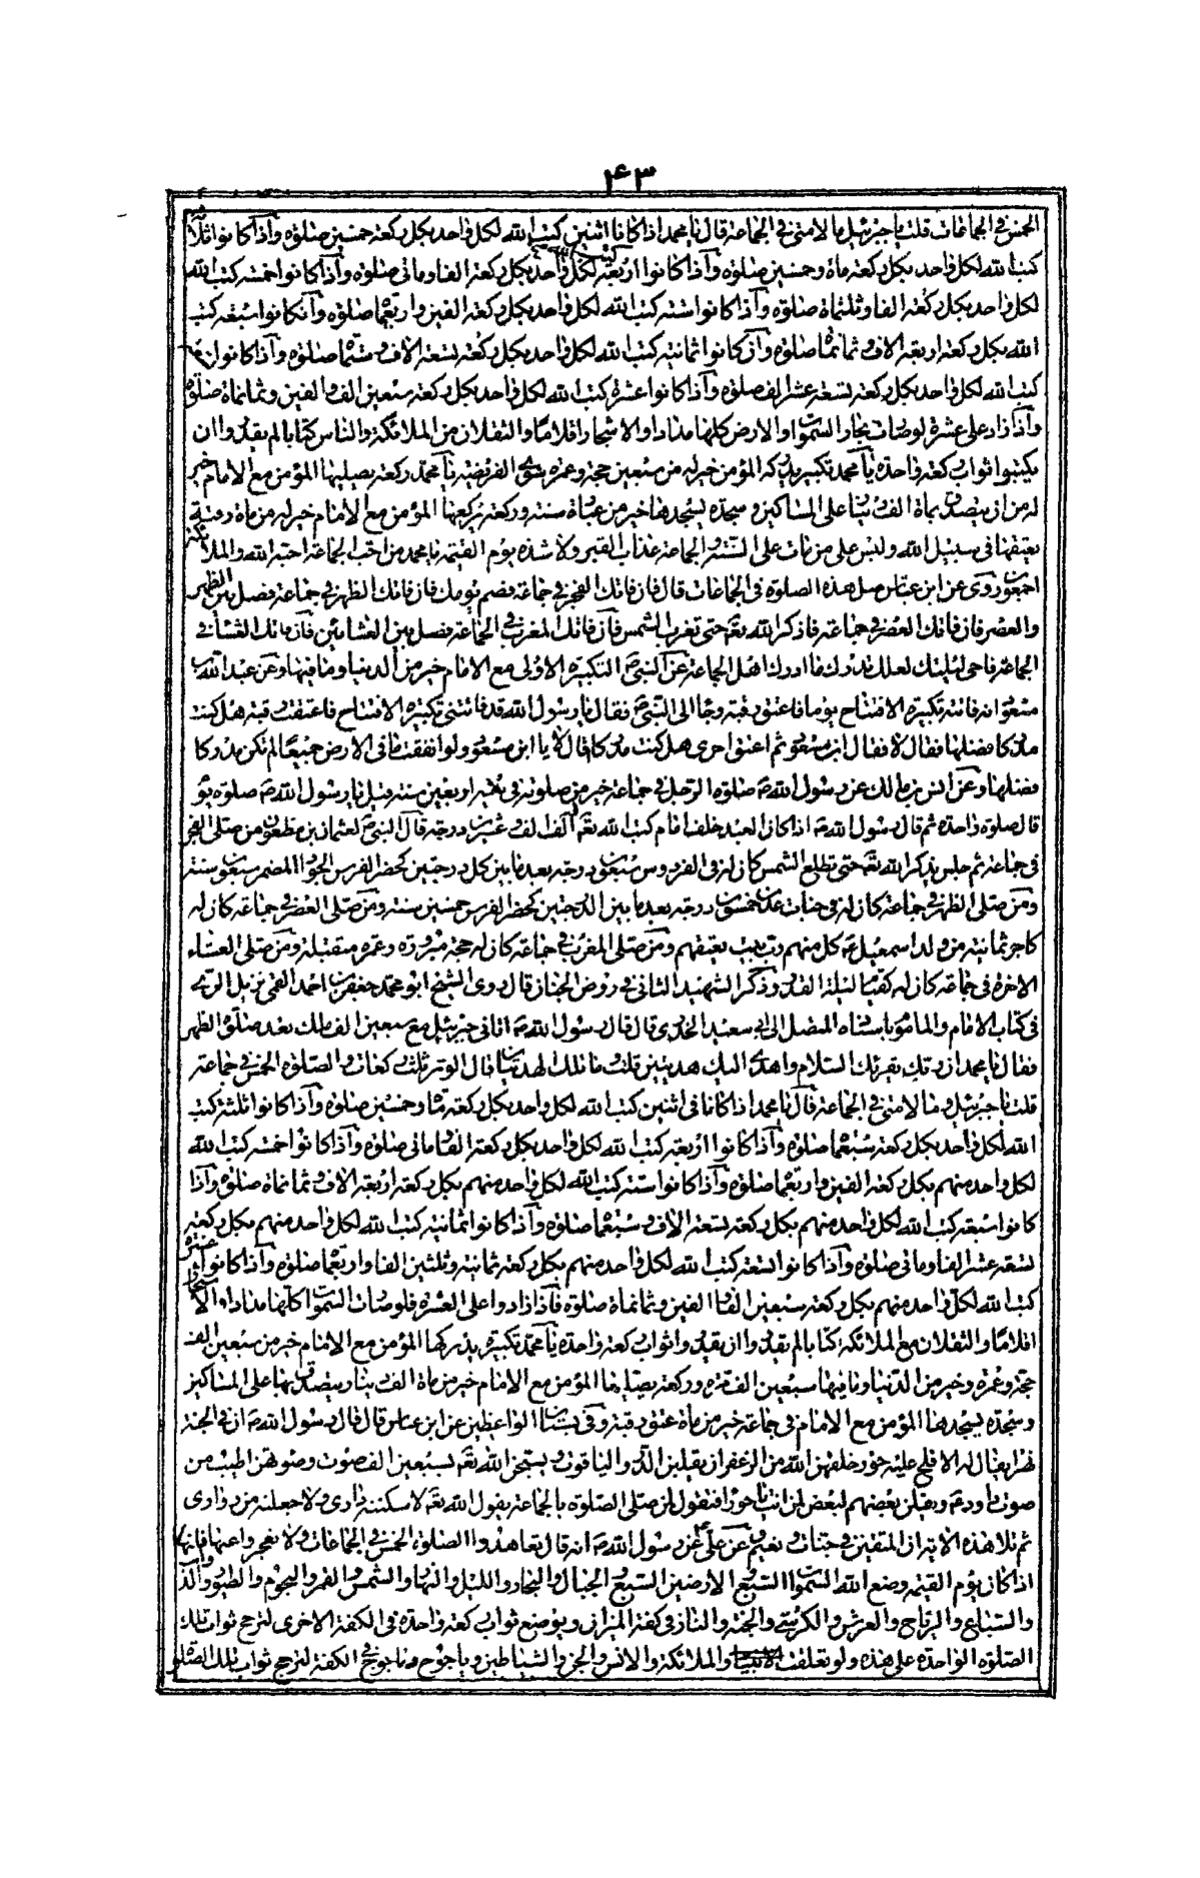 ۴۳
الخمس في الجماعات قلت يا جبرئيل ما لامتي في الجماعة قال يا محمد اذا كانا اثنين كتب الله لكل واحد بكل ركعة خمسين صلوة واذا كانوا ثلاثا
كتب الله لكل واحد بكل ركعة مأة وخمسين صلوة واذا كانوا اربعة لكل واحد بكل ركعة الفا ومأتي صلوة واذا كانوا خمسة كتب الله
لكل واحد بكل ركعة الفا وثلثمأة صلوة واذا كانوا ستة كتب الله لكل واحد بكل ركعة الفين واربعمأ صلوة وان كانوا سبعة كتب
الله بكل ركعة اربعة الاف وثمانمأة صلوة وان كانوا ثمانية كتب الله لكل واحد بكل ركعة تسعة الاف وستمأ صلوة واذا كانوا
كتب الله لكل واحد بكل ركعة تسعة عشر الف صلوة واذا كانوا عشرة كتب الله لكل واحد بكل ركعة سبعين الف والفين وثمانمأة صلوة
واذا زاد على عشرة لو صارت بحار السموات والارض كلها مدادا والاشجار اقلاما والثقلان مع الملائكة والناس كتابا لم يقدروا ان
يكتبوا ثواب ركعة واحدة يا محمد تكبير يدركه المؤمن خير له من سبعين حجة وعمرة سوى الفريضة يا محمد ركعة يصليها المؤمن مع الامام خير
له من ان يتصدق بمأة الف دينار على المساكين وسجدة يسجدها خير من عبادة سنة وركعة يركعها المؤمن مع الامام خير له من مأة رقبة
يعتقها في سبيل الله وليس على من مات على السنة والجماعة عذاب القبر ولا شدة يوم القيمة يا محمد من احب الجماعة احبه الله والملائكة
اجمعون وروى عن ابن عباس هذه الصلوة في الجماعات قال فان فاتك الفجر في جماعة فصم يومك فان فاتك الظهر في جماعة فصل بين الظهر
والعصر فان فاتك العصر في جماعة فاذكر الله تعم حتى تغرب الشمس فان فاتك المغرب في الجماعة فصل بين العشائين فان فاتك العشاء في
الجماعة فاحي ليلتك لعلك تدرك ما ادرك اهل الجماعة عن النبي ص التكبيرة الاولى مع الامام خير من الدنيا وما فيها وعن عبد الله بن
مسعود انه فاتته تكبيرة الافتتاح يوما فاعتق رقبة وجاء الى النبي ص فقال يا رسول الله قد فاتتني تكبيرة الافتتاح فاعتقت رقبة هل كنت
مدركا فضلها فقال لا فقال ابن مسعود ثم اعتق اخرى هل كنت مدركا قال لا يا ابن مسعود ولو انفقت ما في الارض جميعا لم تكن مدركا
فضلها وعن انس بن مالك عن رسول الله ص صلوة الرجل في جماعة خير من صلوته في بيته اربعين سنة قيل يا رسول الله ص صلوة يوم
قال صلوة واحدة ثم قال رسول الله ص اذا كان العبد خلف امام كتب الله تعم الف الف وعشرين درجة قال النبي ص لعثمان بن مظعون من صلى الفجر
في جماعة ثم جلس يذكر الله تعم حتى تطلع الشمس كان له في الفردوس سبعون درجة بعد ما بين كل درجتين كحضر الفرس الجواد المضمر سبعون سنة
ومن صلى الظهر في جماعة كان له في جنات عدن خمسون درجة بعد ما بين الدرجتين كحضر الفرس خمسين سنة ومن صلى العصر في جماعة كان له
كاجر ثمانية من ولد اسمعيل ع كل منهم رب بيت يعتقهم ومن صلى المغرب في جماعة كان له حجة مبرورة وعمرة متقبلة ومن صلى العشاء
الاخرة في جماعة كان له كقيام ليلة القدر وذكر الشهيد الثاني في روض الجنان قال روى الشيخ ابو محمد جعفر بن احمد القمي نزيل الري
في كتاب الامام والماموم باسناده المتصل الى ابي سعيد الخدري قال قال رسول الله ص اتاني جبرئيل مع سبعين الف ملك بعد صلوة الظهر
فقال يا محمد ان ربك يقرئك السلام واهدى اليك هديتين قلت ما تلك الهديتان قال الوتر ثلث ركعات والصلوة الخمس في جماعة
قلت يا جبرئيل وما لامتي في الجماعة قال يا محمد اذا كانا في اثنين كتب الله لكل واحد بكل ركعة مأة وخمسين صلوة واذا كانوا ثلثة كتب
الله لكل واحد بكل ركعة ستمأ صلوة واذا كانوا اربعة كتب الله لكل واحد بكل ركعة الفا ومأتي صلوة واذا كانوا خمسة كتب الله
لكل واحد منهم بكل ركعة الفين واربعمأ صلوة واذا كانوا ستة كتب الله لكل واحد منهم بكل ركعة اربعة الاف وثمانمأة صلوة واذا
كانوا سبعة كتب الله لكل واحد منهم بكل ركعة تسعة الاف وستمأ صلوة واذا كانوا ثمانية كتب الله لكل واحد منهم بكل ركعة
تسعة عشر الفا ومأتي صلوة واذا كانوا تسعة كتب الله لكل واحد منهم بكل ركعة ثمانية وثلثين الفا واربعمأ صلوة واذا كانوا عشرة
كتب الله لكل واحد منهم بكل ركعة سبعين الفا والفين وثمانمأة صلوة فاذا زادوا على العشرة فلو صارت السموات كلها مدادا والاشجار
اقلاما والثقلان مع الملائكة كتابا لم يقدروا ان يكتبوا ثواب ركعة واحدة يا محمد تكبيرة يدركها المؤمن مع الامام خير من سبعين الف
حجة وعمرة وخير من الدنيا وما فيها سبعين الف مرة وركعة يصليها المؤمن مع الامام خير من مأة الف دينار يتصدق بها على المساكين
وسجدة يسجدها المؤمن مع الامام في جماعة خير من مأة عتق رقبة وفي بستان الواعظين عن ابن عباس قال قال رسول الله ص ان في الجنة
نهرا يقال له الافيح عليه حور خلقهن الله من الزعفران يقلبن الدر والياقوت يسبحن الله تعم بسبعين الف صوت وصوتهن اطيب من
صوت داود ع ويقلن بعضهم لبعض لمن انت يا حوراء فتقول لمن صلى الصلوة بالجماعة يقول الله تعم لاسكننه داري ولاجعلنه من زواري
ثم تلا هذه الاية ان المتقين في جنات ونعيم وعن علي ع عن رسول الله ص انه قال تعاهدوا الصلوة الخمس في الجماعات ولا تعجزوا عنها فانها
اذا كان يوم القيمة وضع الله السموات السبع والارضين السبع والجبال والبحار والليل والنهار والشمس والقمر والنجوم والطيور والدواب
والسباع والرياح والعرش والكرسي والجنة والنار في كفة الميزان ويوضع ثواب ركعة واحدة في الكفة الاخرى لترجح ثواب تلك
الصلوة الواحدة على هذه ولو تعلقت الانبياء والملائكة والانس والجن والشياطين وياجوج وماجوج في الكفة لترجح ثواب تلك الصلوة